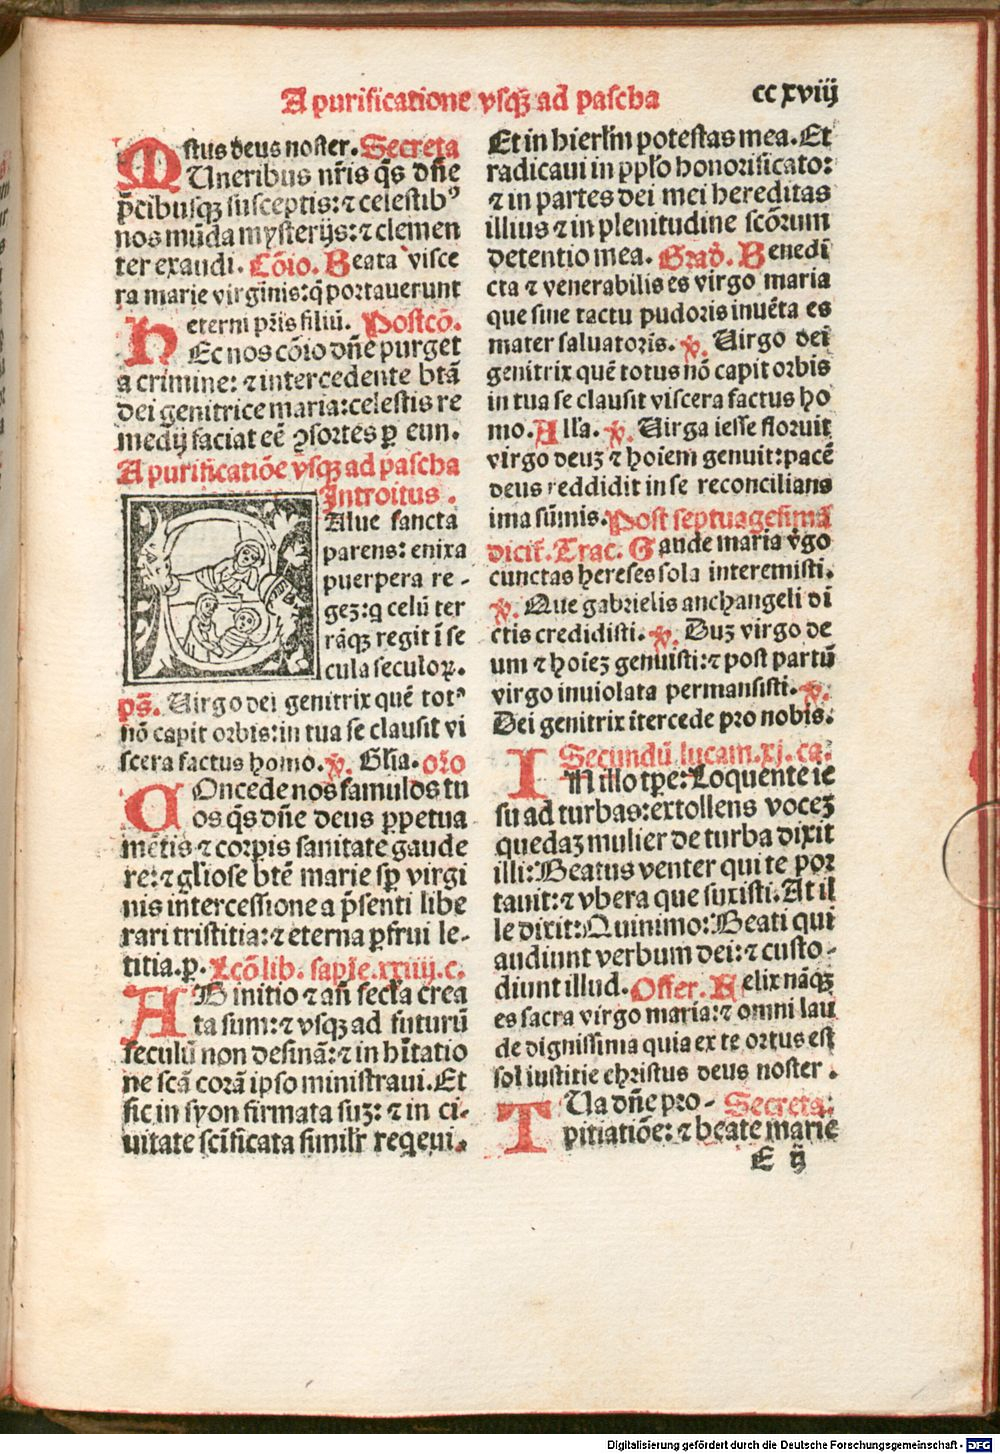 A purificatione vsq̃ ad pascha
cc xviij
stus deus noster. Secreta
MUneribus nr̃is q̃s dñe
p̃cibusqꝫ susceptis: ⁊ celestibꝰ
nos mũda mysterijs: ⁊ clemen
ter exaudi. Cõio. Beata visce
ra marie virginis: q̃ portauerunt
eterni pr̃is filiũ. Postcõ.
HEc nos cõio dñe purget
a crimine: ⁊ intercedente btã
dei genitrice maria: celestis re
medij faciat eẽ ꝯsortes ꝑ eun.
A purificatiõe vsqꝫ ad pascha
Introitus.
SAlue sancta
parens: enixa
puerpera re-
gez: q celũ ter
rãqꝫ regit ĩ se
cula seculoꝝ.
ps̃. Uirgo dei genitrix quẽ totꝰ
nõ capit orbis: in tua se clausit vi
scera factus homo. ℣. Glia. oro
COncede nos famulos tu
os q̃s dñe deus ꝑpetua
mẽtis ⁊ corꝑis sanitate gaude
re: ⁊ gliose btẽ marie sꝑ virgi
nis intercessione a p̃senti libe
rari tristitia: ⁊ eterna ꝑfrui le-
titia. ꝑ. Lcõ lib. sapie. xxiiij. c.
AB initio ⁊ añ secła crea
ta sum: ⁊ vsqꝫ ad futurũ
seculũ non desinã: ⁊ in hĩtatio
ne scã corã ipso ministraui. Et
sic in syon firmata suꝫ: ⁊ in ci-
uitate scĩficata similr̃ reqeui.
Et in hierlm̃ potestas mea. Et
radicaui in ppło honorificato:
⁊ in partes dei mei hereditas
illius ⁊ in plenitudine scõrum
detentio mea. Grad̃. Benedi
cta ⁊ venerabilis es virgo maria
que sine tactu pudoris inuẽta es
mater saluatoris. ℣. Uirgo dei
genitrix quẽ totus nõ capit orbis
in tua se clausit viscera factus ho
mo. Alla. ℣. Uirga iesse floruit
virgo deuꝫ ⁊ hoiem genuit: pacẽ
deus reddidit in se reconcilians
ima sũmis. Post septuagesimã
dicit̃. Trac. Gaude maria v̓go
cunctas hereses sola interemisti.
℣. Que gabrielis anchangeli di
ctis credidisti. ℣. Duꝫ virgo de
um ⁊ hoieꝫ genuisti: ⁊ post partũ
virgo inuiolata permansisti. ℣.
Dei genitrix ĩtercede pro nobis.
Secundũ lucam. xj. ca.
IN illo tp̃e: Loquente ie
su ad turbas: extollens voceꝫ
quedaꝫ mulier de turba dixit
illi: Beatus venter qui te por
tauit: ⁊ vbera que suxisti. At il
le dixit: Quinimo: Beati qui
audiunt verbum dei: ⁊ custo-
diunt illud. Offer. Felix nãqꝫ
es sacra virgo maria: ⁊ omni lau
de dignissima quia ex te ortus est
sol iustitie christus deus noster.
TUa dñe pro- Secreta:
pitiatiõe: ⁊ beate marie
E ij
Digitalisierung gefördert durch die Deutsche Forschungsgemeinschaft - DFG